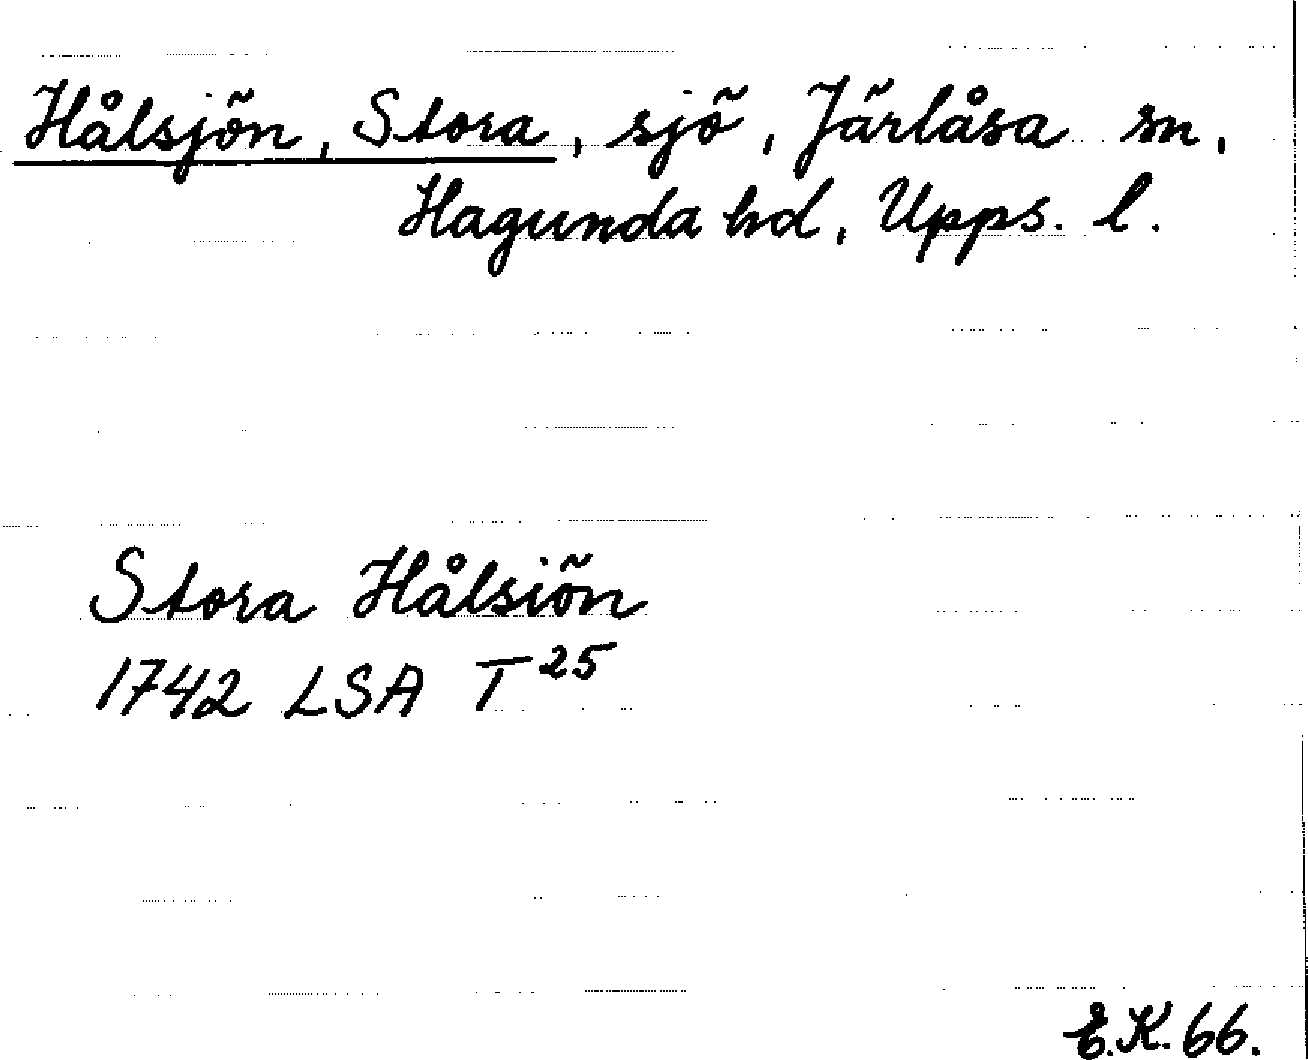 Hålsjön, Stora, sjö, Järlåsa sn,
Hagunda hd, Upps. l.
Stora Hålsiön
1742 LSA T25
E.K. 66.